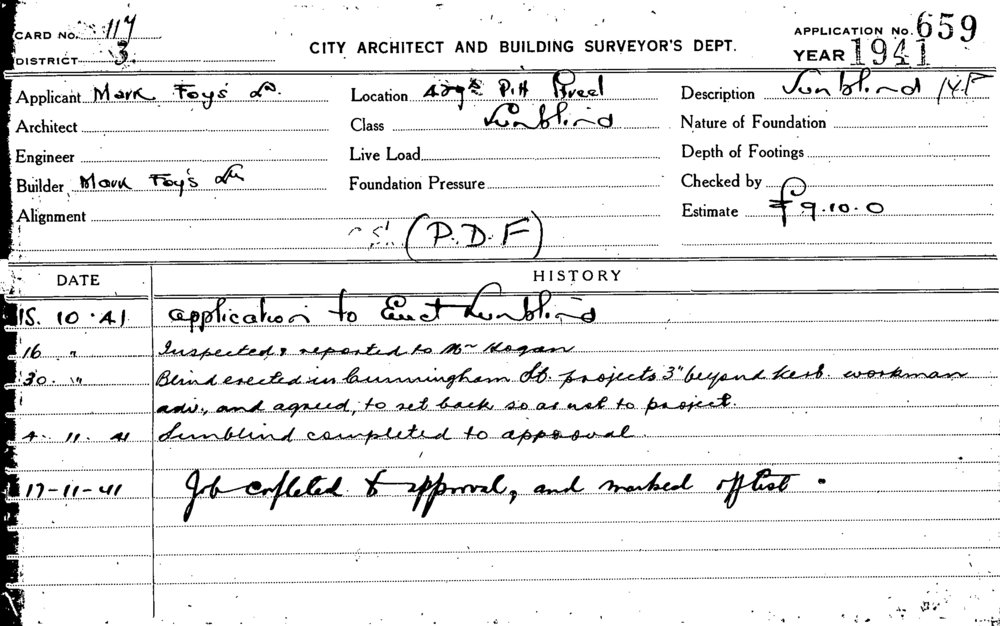 CARD No. 117
DISTRICT 3.
CITY ARCHITECT AND BUILDING SURVEYOR'S DEPT.
APPLICATION No. 659
YEAR 1941
Applicant Mark Foy's Ld. Location Pitt Street Description Sunblind
Architect Class Sunblind Nature of Foundation
Engineer Live Load Depth of Footings
Builder Mark Foy's Ld Foundation Pressure Checked by
Alignment Estimate £9.10.0
(P.D.F)
DATE HISTORY
15. 10. 41 application to Erect Sunblind
16 " Inspected & reported to Mr Hogan
30. " Blind erected in Cunningham St. projects 3" beyond kerb. workman
adv., and agreed, to set back so as not to project.
4. 11. 41 Sunblind completed to approval.
17-11-41 Job completed to approval, and marked off list.